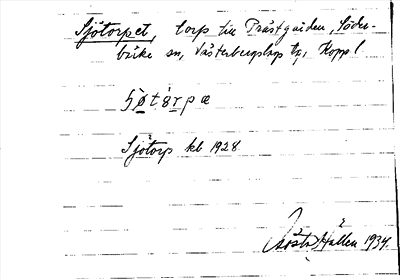 Sjötorpet, torp till Prästgården, Söder-
bärke sn, Västerbergslags hg, Koppl.
Sjötorp kb 1928
Gösta Hallen 1934.